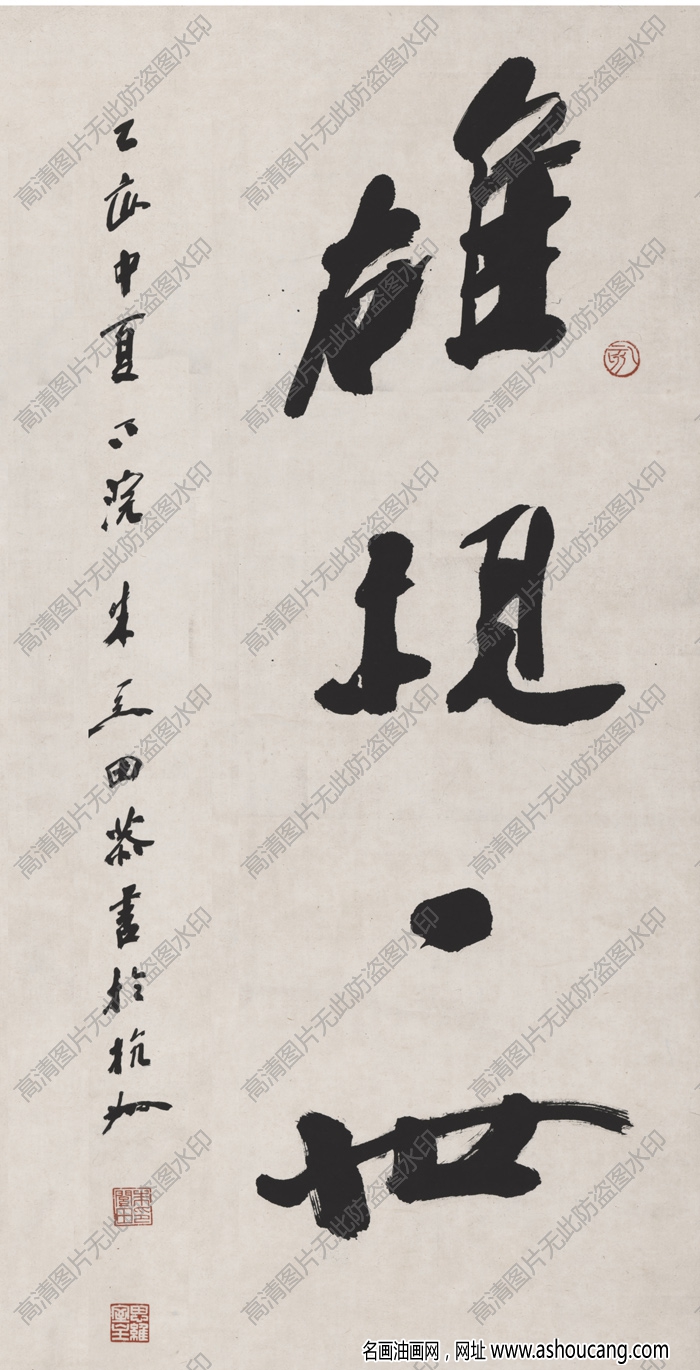 雄視一世
乙亥中夏下浣朱关田恭書於杭州
高清图片无此防盗图水印
名画油画网，网址 www.ashoucang.com